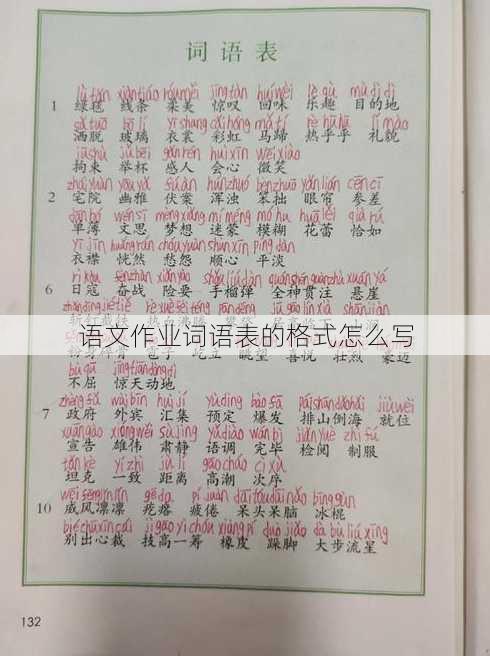 词语表
lǜ tǎn xiàn tiáo róu měi jīng tàn huí wèi lè qù mù dì dì
1 绿毯 线条 柔美 惊叹 回味 乐趣 目的地
sǎ tuō bō lí yī shang cǎi hóng mǎ tí rè hū hū lǐ mào
洒脱 玻璃 衣裳 彩虹 马蹄 热乎乎 礼貌
jū shù jǔ bēi gǎn rén huì xīn wēi xiào
拘束 举杯 感人 会心 微笑
zhái yuàn yōu yǎ fú àn hún zhuó bèn zhuō yǎn lián cēn cī
2 宅院 幽雅 伏案 浑浊 笨拙 眼帘 参差
dān bó wén sī mèng xiǎng mí méng mó hu huā lěi qià rú
单薄 文思 梦想 迷蒙 模糊 花蕾 恰如
yī jīn huǎng rán chóu yuàn shùn xīn píng dàn
衣襟 恍然 愁怨 顺心 平淡
rì kòu fèn zhàn xiǎn yào shǒu liú dàn quán shén guàn zhù xuán yá
6 日寇 奋战 险要 手榴弹 全神贯注 悬崖
zhǎn dīng jié tiě rè xuè fèi téng
语文作业词语表的格式怎么写
屹立 眺望 喜悦 壮烈 豪迈
bù qū jīng tiān dòng dì
不屈 惊天动地
zhèng fǔ wài bīn huì jí yù dìng bào fā pái shān dǎo hǎi jiù wèi
7 政府 外宾 汇集 预定 爆发 排山倒海 就位
xuān gào xióng wěi sù jìng yǔ diào wán bì jiǎn yuè zhì fú
宣告 雄伟 肃静 语调 完毕 检阅 制服
tǎn kè yí zhì jù lí gāo cháo cì xù
坦克 一致 距离 高潮 次序
wēi fēng lǐn lǐn gē da pí juàn dāi tóu dāi nǎo bīng gùn
10 威风凛凛 疙瘩 疲倦 呆头呆脑 冰棍
bié chū xīn cái jì gāo yì chóu xiàng pí duò jiǎo dà bù liú xīng
别出心裁 技高一筹 橡皮 跺脚 大步流星
132